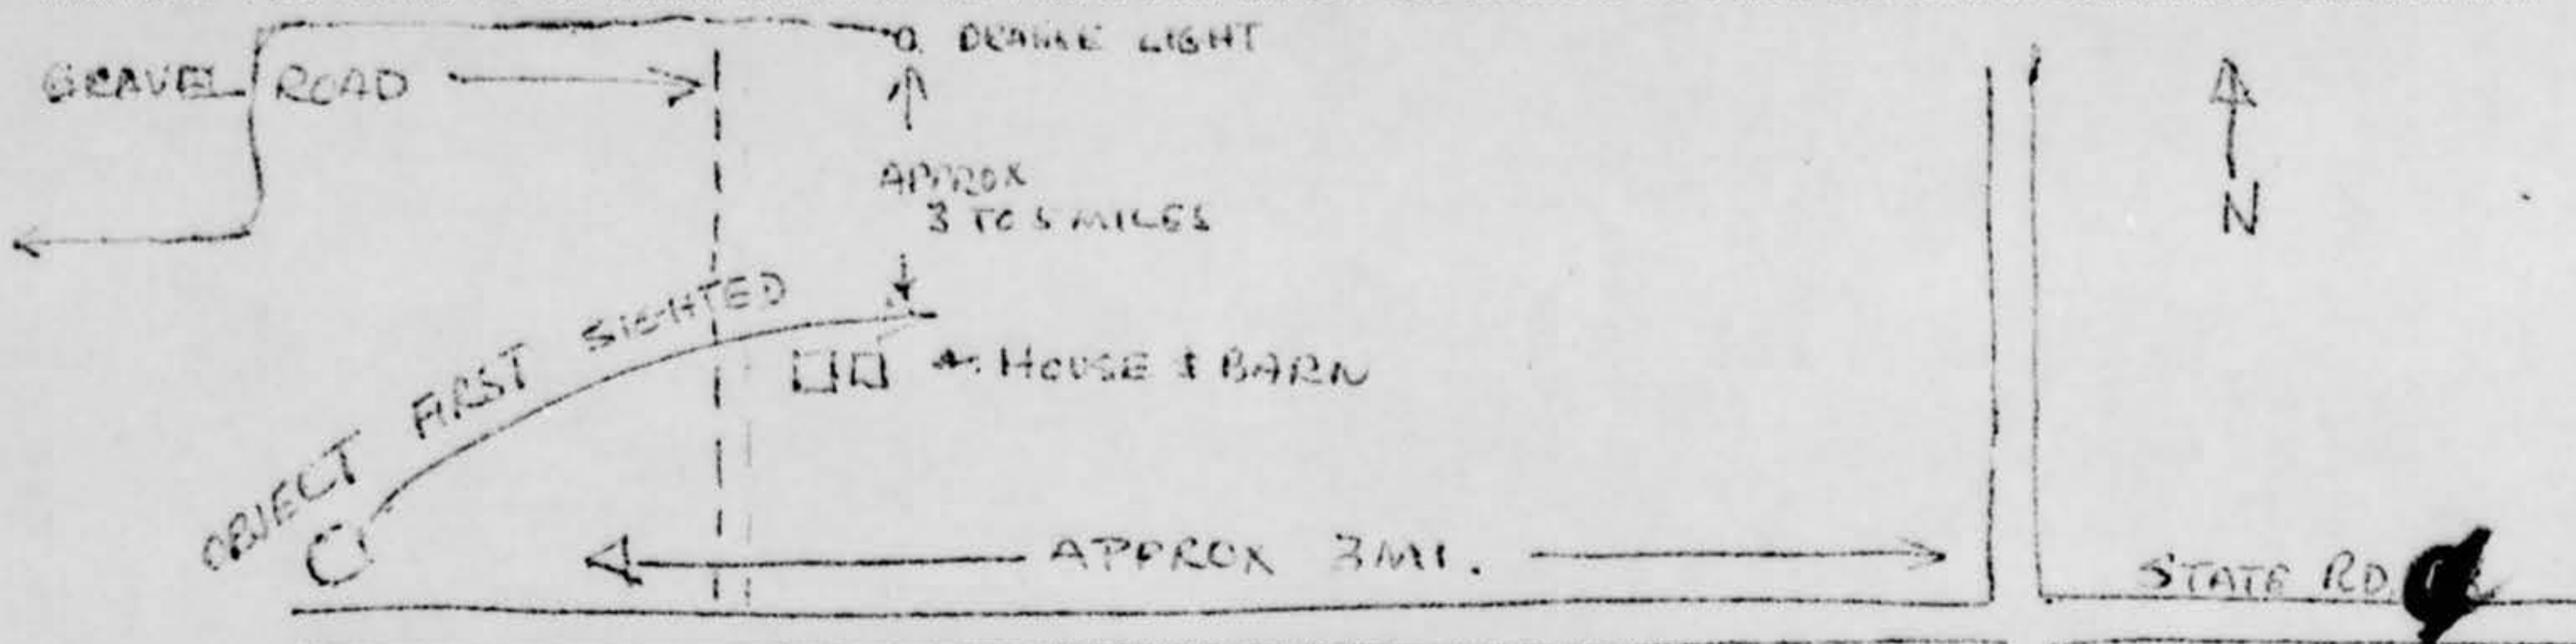 ORANGE LIGHT
GRAVEL ROAD
N
APPROX
3 TO 5 MILES
OBJECT FIRST SIGHTED
HOUSE & BARN
APPROX 3 MI.
STATE RD.